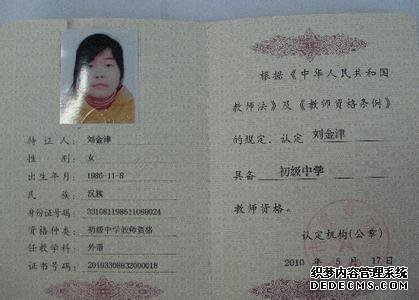 持 证 人： 刘金津
性 别： 女
出生年月： 1986-11-8
民 族： 汉族
身份证号码： 331081198611086024
资格种类： 初级中学教师资格
任教学科： 外语
证书号码： 20103308832000018
根据《中华人民共和国
教师法》及《教师资格条例》
的规定，认定 刘金津
具备 初级中学
教师资格。
认定机构(公章)
2010 年 5 月 17 日
文学织梦内容管理系统
DEDECMS.COM